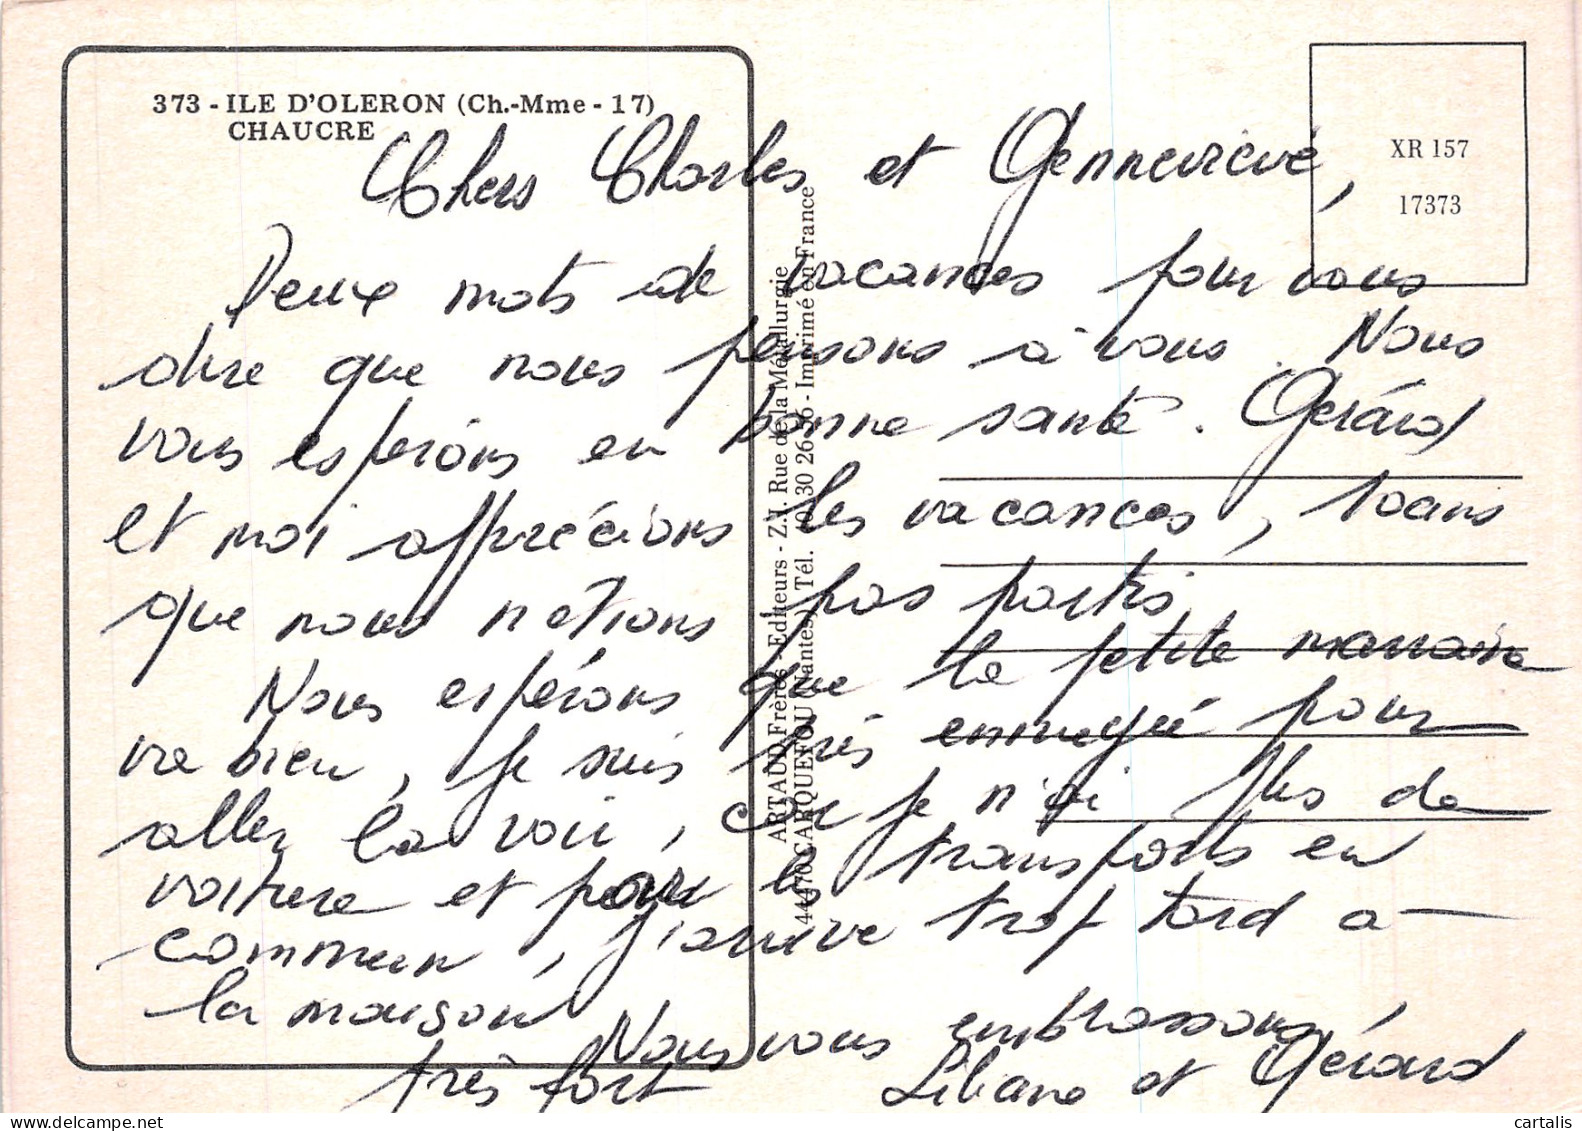 373 - ILE D'OLERON (Ch.-Mme - 17)
CHAUCRE
XR 157
17373
Chers Charles et Genneviève,
Deux mots de vacances pour vous
dire que nous pensons à vous. Nous
vous espérons en bonne santé. Gérard
et moi apprécions les vacances, 10 ans
que nous n'étions pas partis.
Nous espérons que la petite marraine
va bien, je suis très ennuyée pour
aller la voir, car je n'ai plus de
voiture et par les transports en
commun, j'arrive trop tard à
la maison.
Nous vous embrassons
très fort
Liliane et Gérard
ARTAUD Frères - Editeurs - Z.I. Rue de la Métallurgie
44470 CARQUEFOU (Nantes) Tél. 40 30 26 56 - Imprimé en France
cartalis